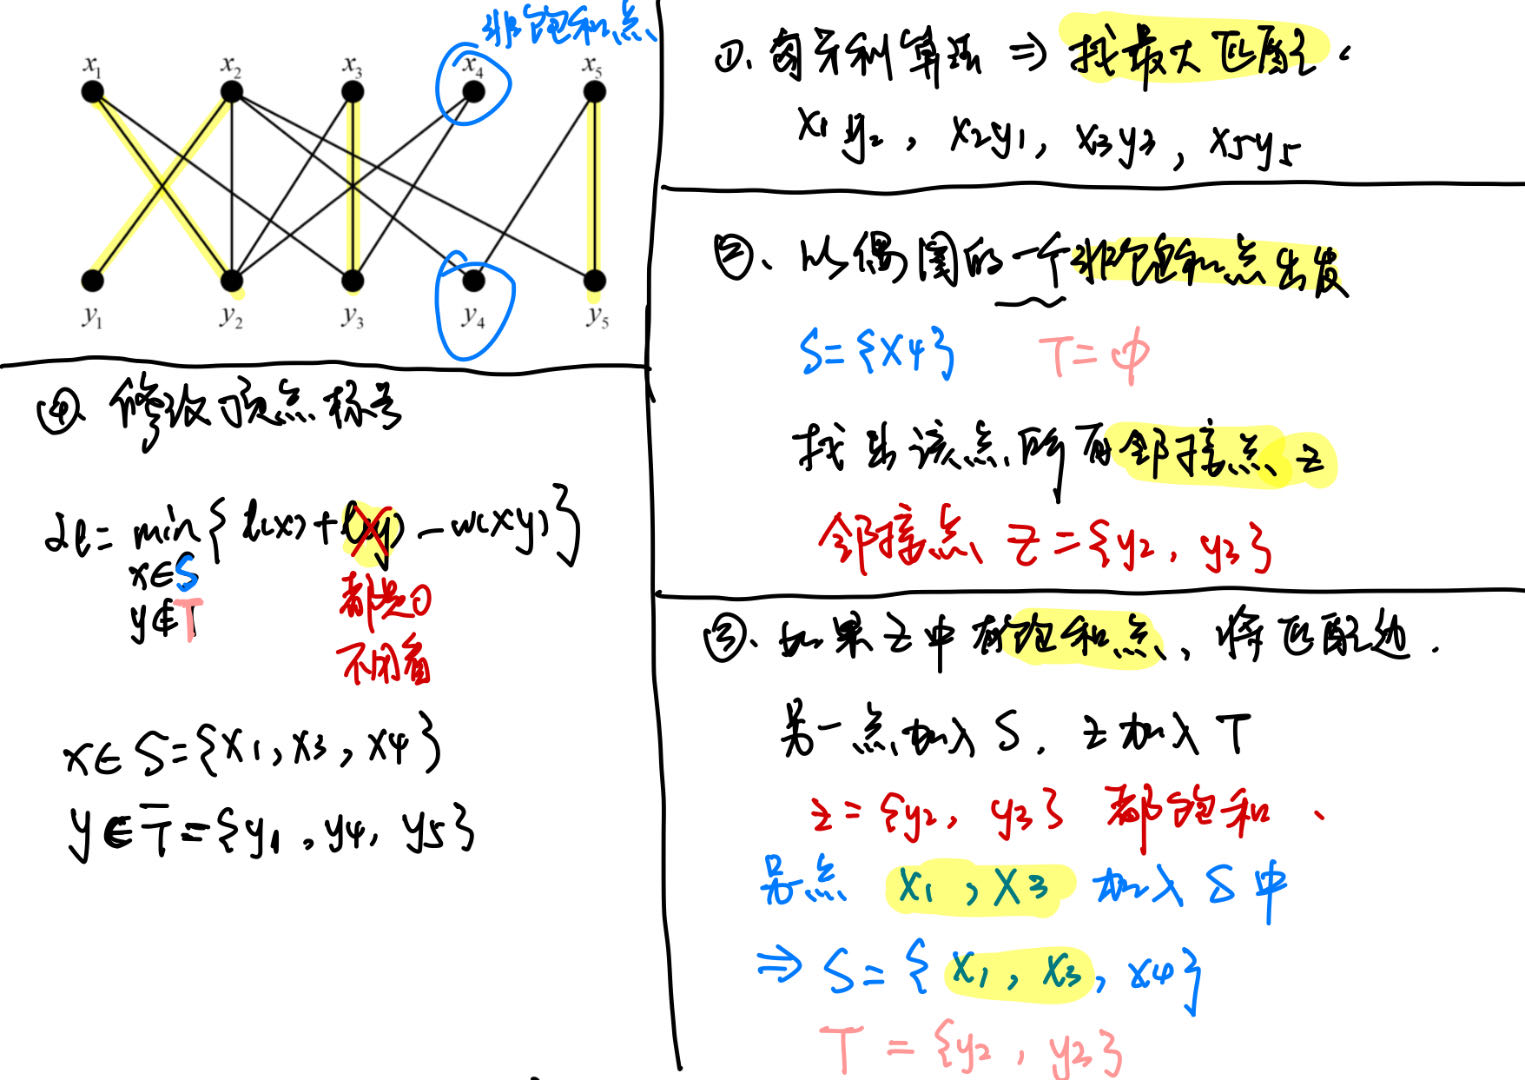 非饱和点
x₁ x₂ x₃ x₄ x₅
y₁ y₂ y₃ y₄ y₅
①. 匈牙利算法 ⇒ 找最大匹配.
x₁y₂, x₂y₁, x₃y₃, x₅y₅
②、以偶图的一个非饱和点出发
S={x₄} T=φ
找出该点所有邻接点 z
邻接点 z={y₂, y₃}
③. 如果z中有饱和点、将匹配边.
另一点加入S. z加入T
z={y₂, y₃} 都饱和、
另点 x₁, x₃ 加入S中
⇒ S={x₁, x₃, x₄}
T={y₂, y₃}
④. 修改顶点标号
αl=min{l(x)+l(y)-w(xy)}
x∈S
y∉T
都是0
不用看
x∈S={x₁, x₃, x₄}
y∈T̅={y₁, y₄, y₅}